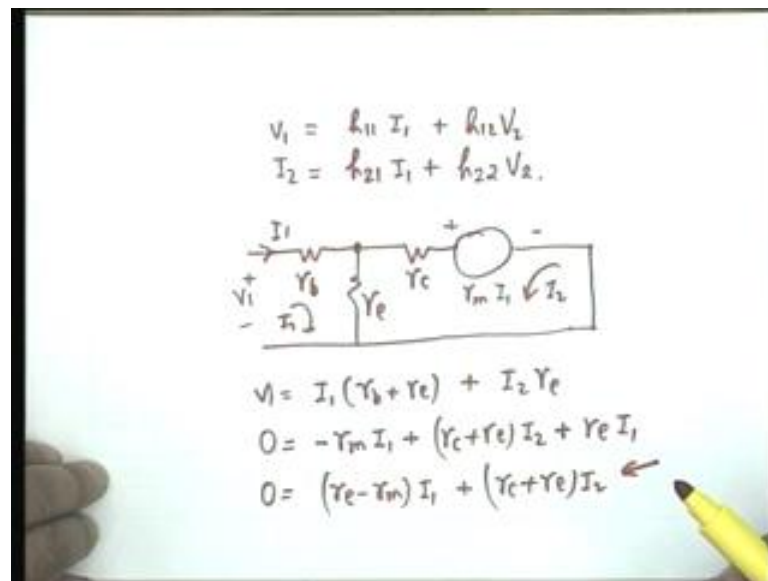 V₁ = h₁₁ I₁ + h₁₂ V₂
I₂ = h₂₁ I₁ + h₂₂ V₂.
I₁
+ -
V₁ + -
r_b
r_e
r_c
r_m I₁
I₂
I₁
V₁ = I₁ (r_b + r_e) + I₂ r_e
0 = -r_m I₁ + (r_c + r_e) I₂ + r_e I₁
0 = (r_e - r_m) I₁ + (r_c + r_e) I₂